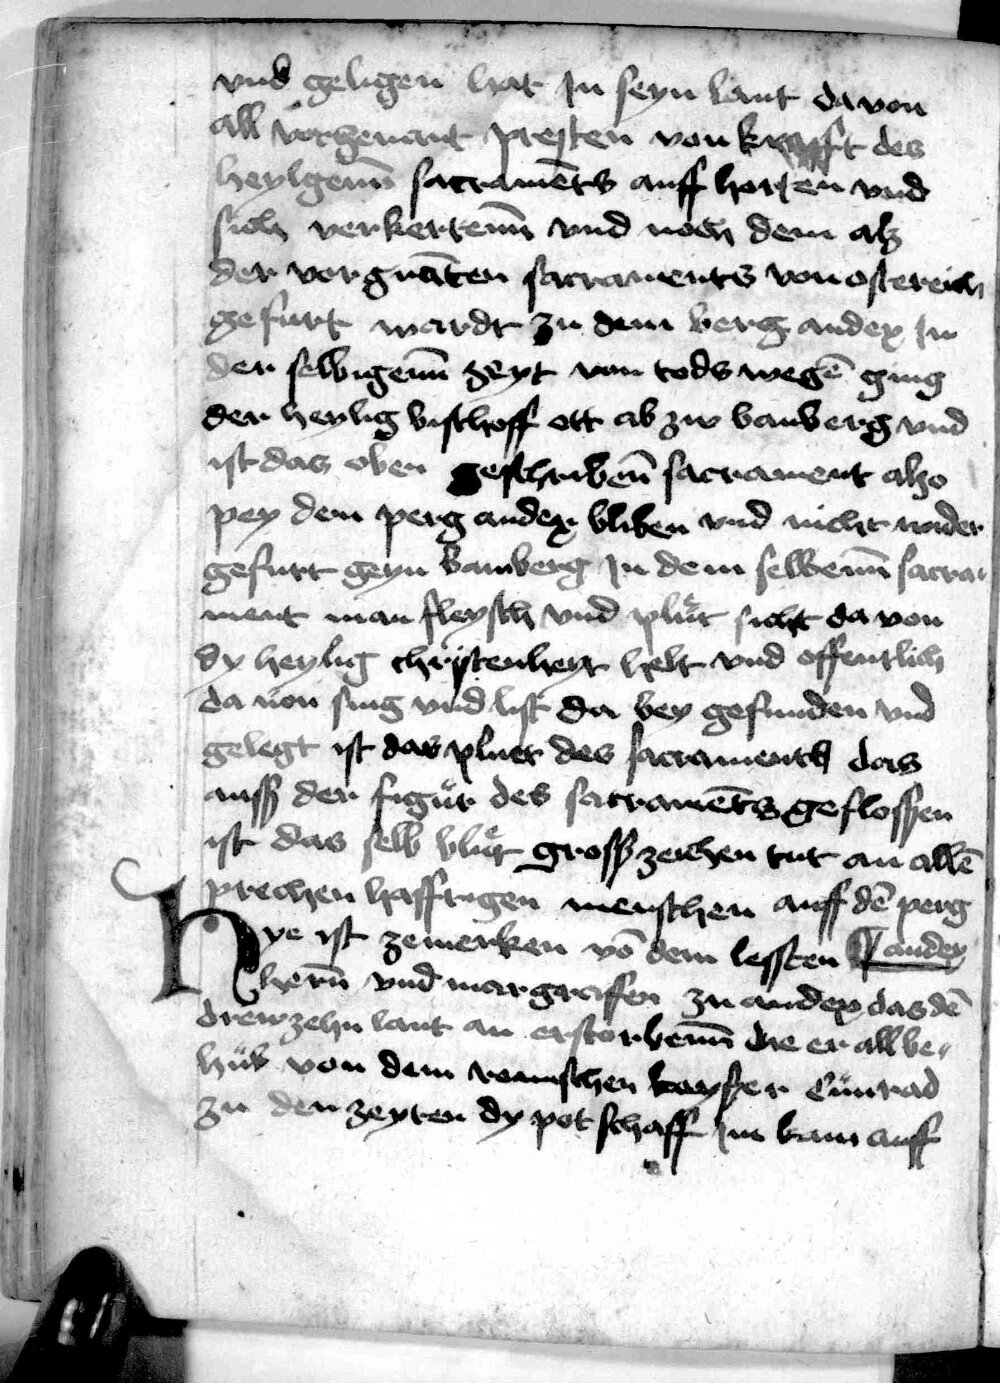 vnd geligen hat Jn seyn lant da von
all vorgenant presten von krafft des
heylgenn̄ sacramēts auff horten vnd
sich verkertenn̄ vnd noch dem alz
der vorgnāten sacraments von ostereich
gefurt wardt zu dem berg andex Jn
der selbigenn̄ zeyt von tods wegē ging
der heylig bischoff ott ab zw bamberg vnd
ist das oben geschribenn̄ sacrament alzo
pey dem perg andex bliben vnd nicht wider
gefurt geyn bamberg Jn dem selbenn̄ sacra-
ment man fleysch vnd plůt sicht da von
dy heylig christenheyt helt vnd offentlich
da von sing vnd list da bey gefunden vnd
gelegt ist das pluet des sacraments das
auss der figůr des sacramēts geflossen
ist das selb blůt gross zeichen tut an allē
prechen hafftigen menschen auff dē perg
andex
Hye ist zemerken vō dem lessten
hern̄ vnd margraffen zu andex das dē
drewzehn lant an erstorbenn̄ die er all be-
hůb von dem romischen kayser Cůnrad
zu den zeyten dy potschafft Jm kam auff